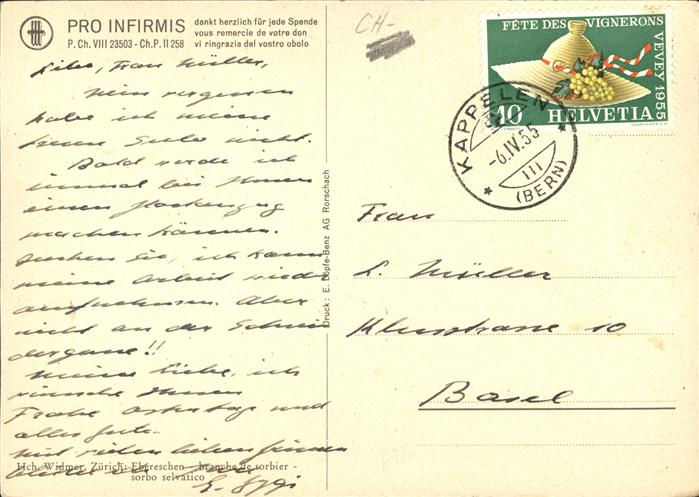 PRO INFIRMIS
P. Ch. VIII 23503 - Ch.P. II 258
dankt herzlich für jede Spende
vous remercie de votre don
vi ringrazia del vostro obolo
Liebe, Frau Müller,
Nein vergessen
habe ich meine
Seele nicht.
Bald werde ich
einmal bei Ihnen
einen
machen können.
Sie, ich kann
meine Arbeit wieder
aufnehmen. Aber
nicht an der
!!
Meine Liebe, ich
wünsche Ihnen
Frohe Ostertage und
alles Gute.
Mit vielen lieben Grüssen
Hch. Widmer, Zürich: Ebereschen - branche de sorbier -
sorbo selvatico
Druck: E. Löpfe-Benz AG Rorschach
CH-
FÊTE DES VIGNERONS
VEVEY 1955
10 HELVETIA
KAPPELEN
-6.IV.55
III
(BERN)
Frau
L. Müller
10
Basel